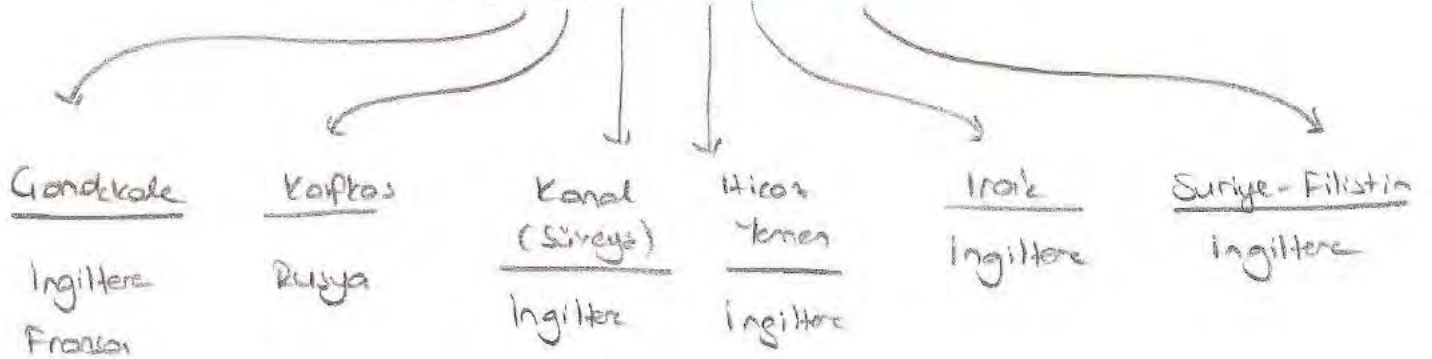 Çanakkale
İngiltere
Fransa
Kafkas
Rusya
Kanal
(Süveyş)
İngiltere
Hicaz
Yemen
İngiltere
Irak
İngiltere
Suriye-Filistin
İngiltere